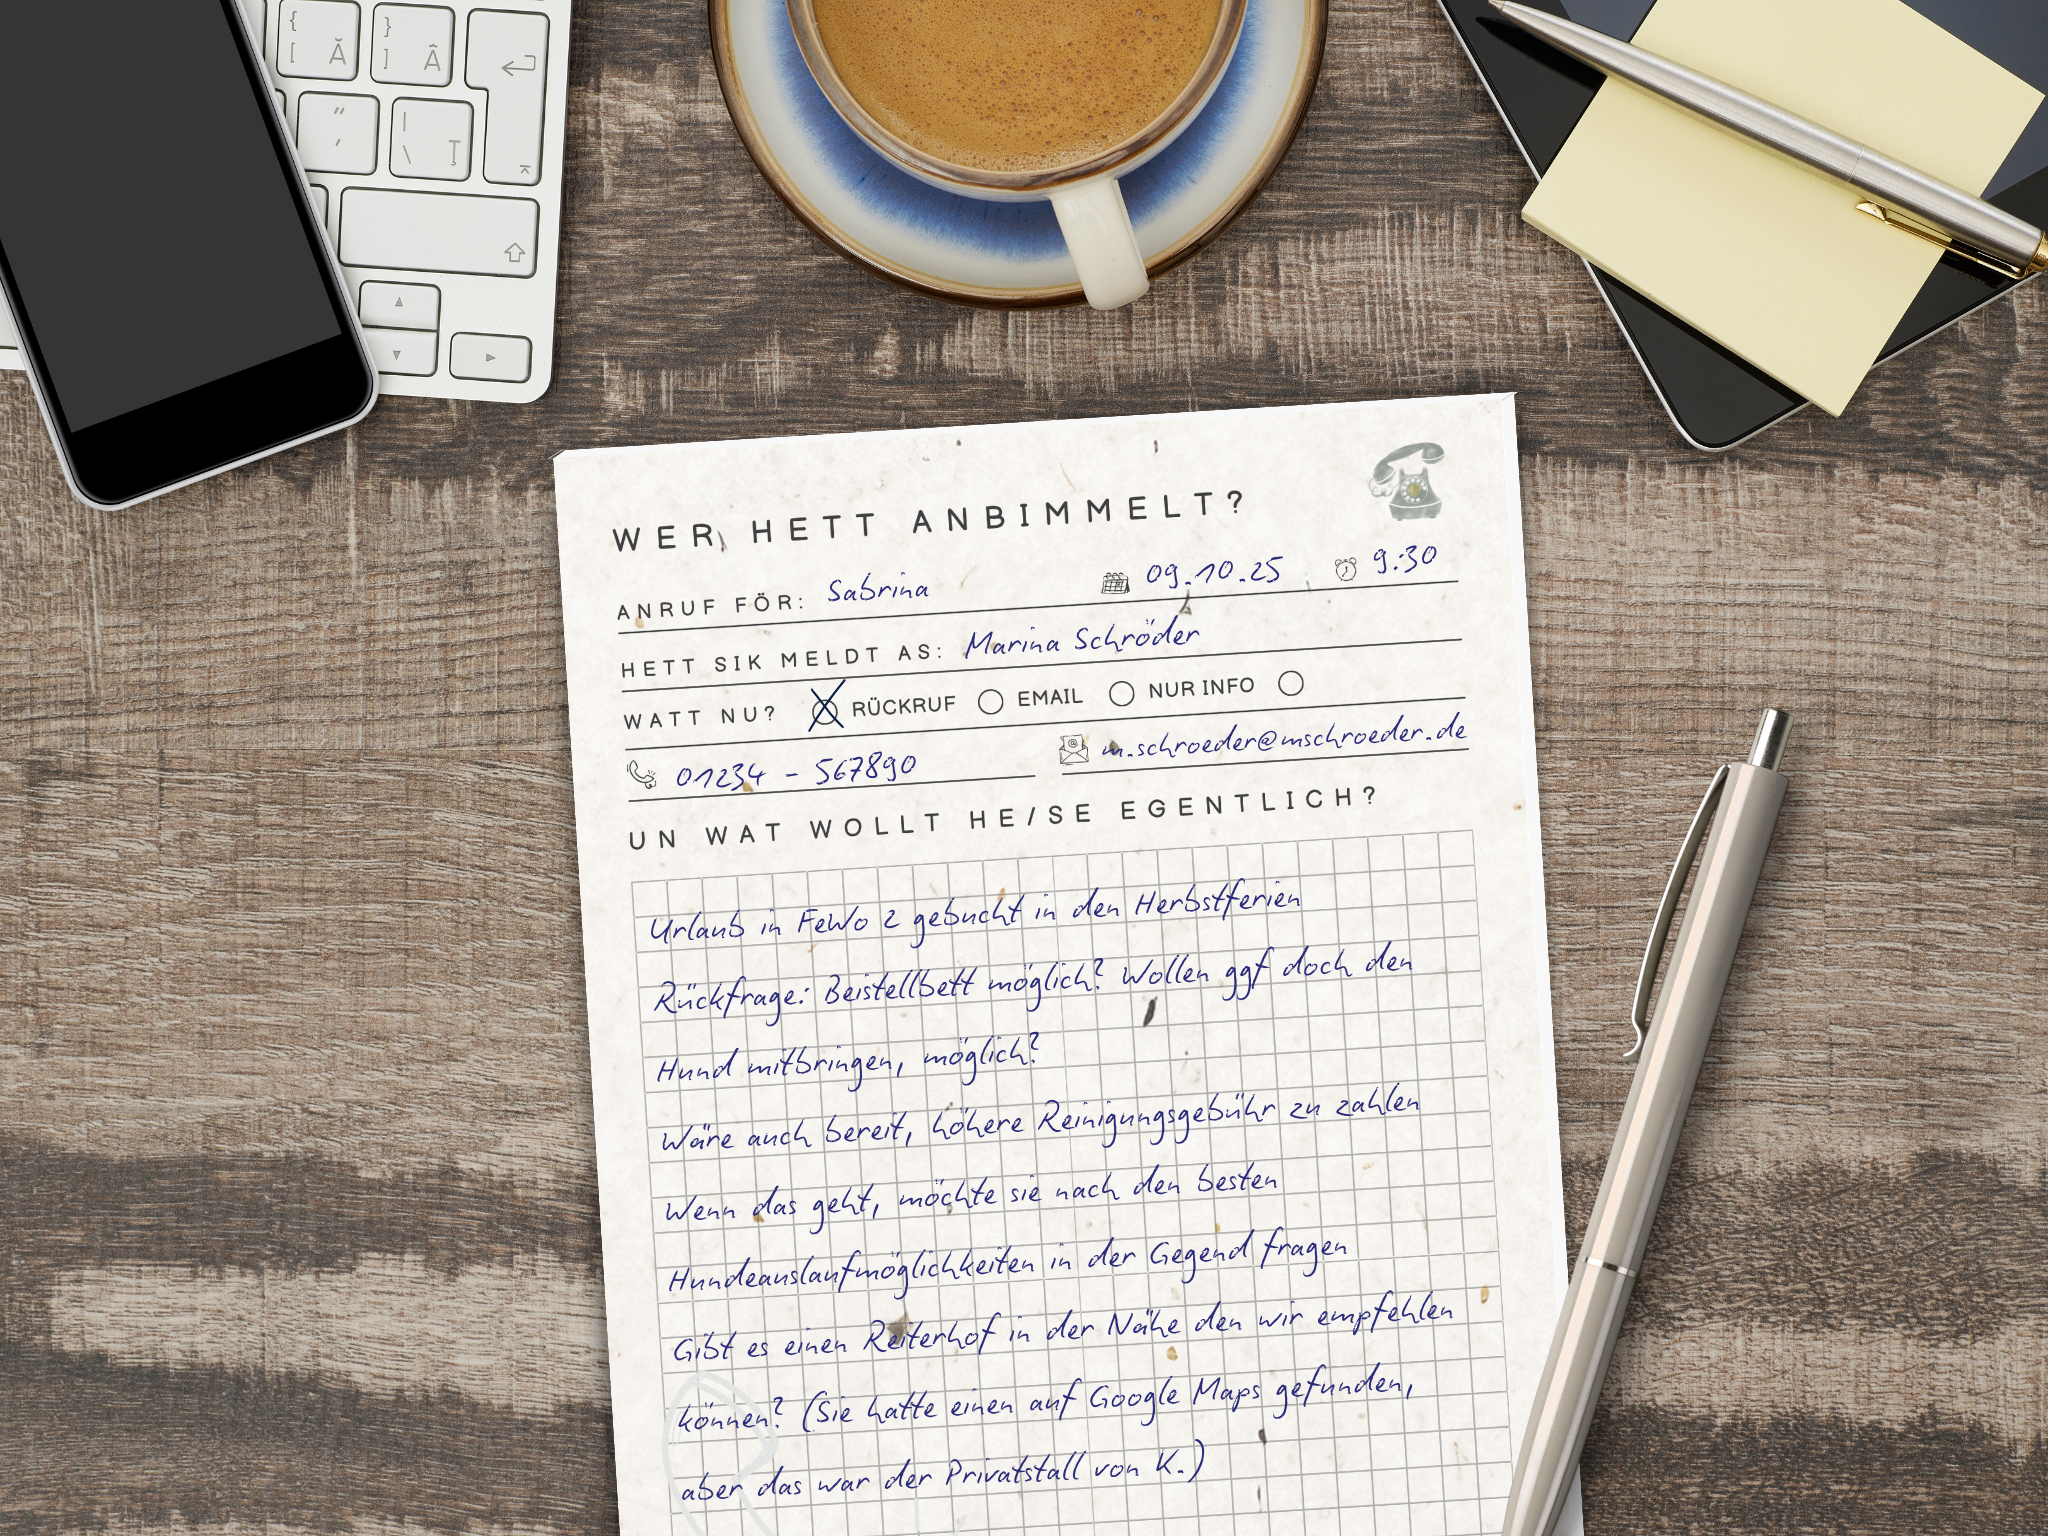 {
[ Ă
}
] Â
"
'
|
\ Ț
WER HETT ANBIMMELT?
ANRUF FÖR: Sabrina 09.10.25 9:30
HETT SIK MELDT AS: Marina Schröder
WATT NU? RÜCKRUF EMAIL NUR INFO
01234 - 567890 m.schroeder@mschroeder.de
UN WAT WOLLT HE/SE EGENTLICH?
Urlaub in FeWo 2 gebucht in den Herbstferien
Rückfrage: Beistellbett möglich? Wollen ggf doch den
Hund mitbringen, möglich?
Wäre auch bereit, höhere Reinigungsgebühr zu zahlen
Wenn das geht, möchte sie nach den besten
Hundeauslaufmöglichkeiten in der Gegend fragen
Gibt es einen Reiterhof in der Nähe den wir empfehlen
können? (Sie hatte einen auf Google Maps gefunden,
aber das war der Privatstall von K.)